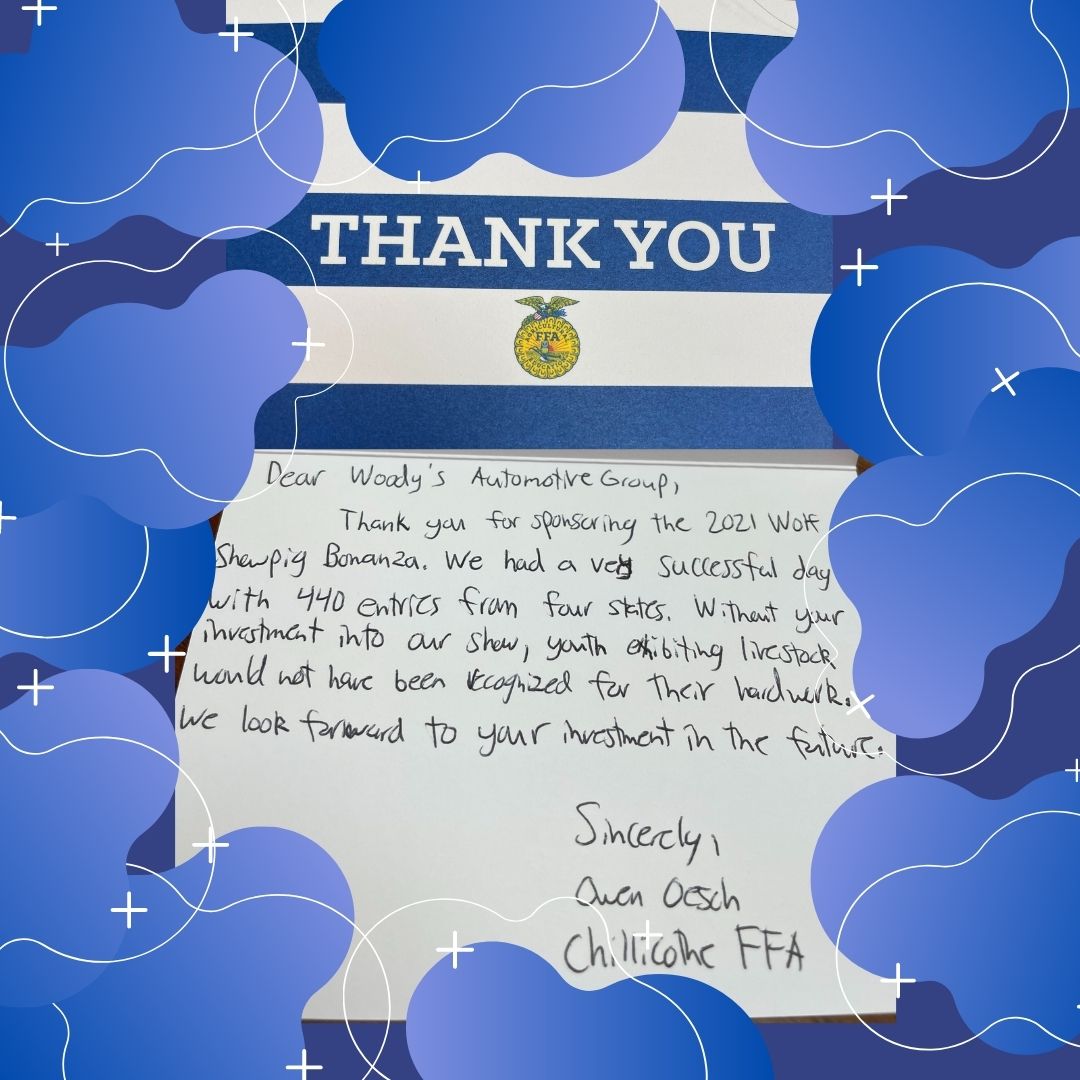 THANK YOU
AGRICULTURAL
FFA
EDUCATION
Dear Woody's Automotive Group,
Thank you for sponsoring the 2021 Wolf
Showpig Bonanza. We had a very successful day
with 440 entries from four states. Without your
investment into our show, youth exhibiting livestock
would not have been recognized for their hardwork.
We look forward to your investment in the future.
Sincerely,
Owen Oesch
Chillicothe FFA